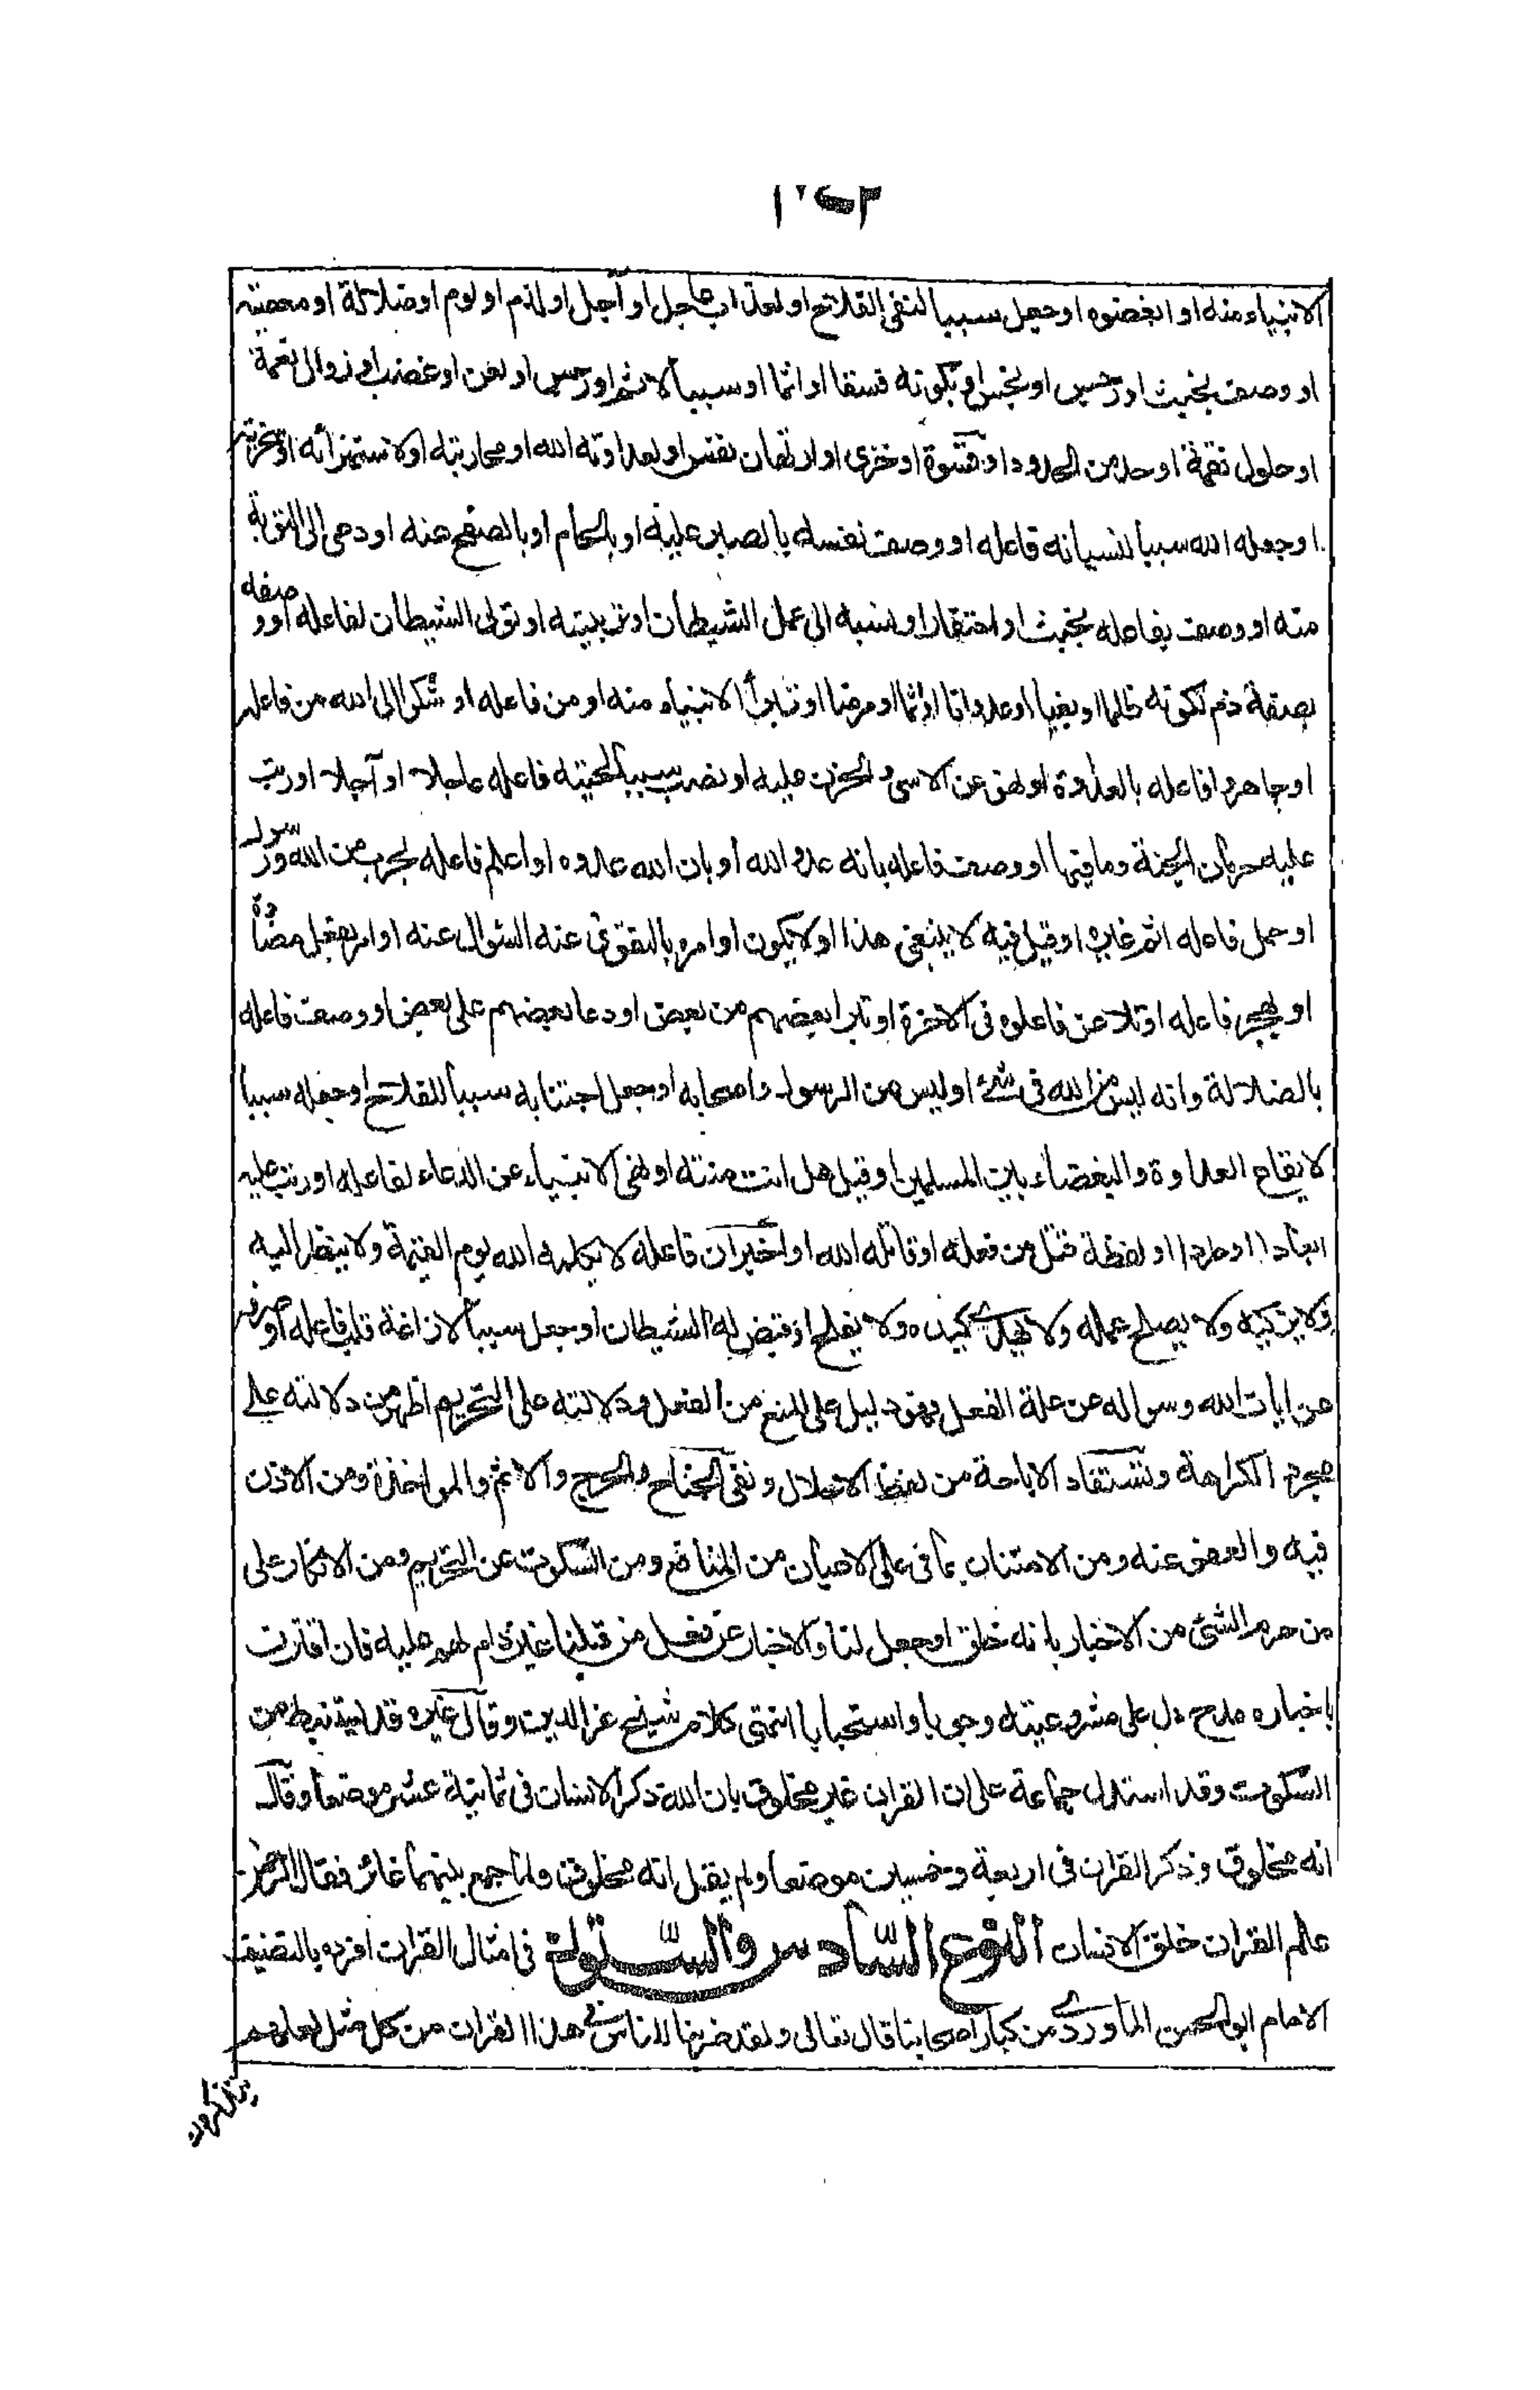 الانبياء منه او ابغضوه او جعل سببا لنفى الفلاح او لعذاب عاجل او آجل او لذم او لوم او ضلالة او معصية
او وصف بخبث او رجس او بنجس او بكونه فسقا او اثما او سببا لاثم او رجس او لعن او غضب او زوال نعمة
او حلول نقمة او حد من الحدود او قسوة او خزى او ارتهان نفس او لعداوته الله او محاربته او لاستهزائه او سخريته
او جعله الله سببا لنسيانه فاعله او وصف نفسه بالصبر عليه او بالحلم او بالصفح عنه او دعى الى التوبة
منه او وصف بفاعله بخبث او احتقار او نسبه الى عمل الشيطان او تزيينه او تولى الشيطان لفاعله او وصفه
بصفة ذم لكونه ظلما او بغيا او عدوانا او اثما او مرضا او تبرأ الانبياء منه او من فاعله او شكوا الى الله من فاعله
او جاهروا فاعله بالعداوة او نهى عن الاسى والحزن عليه او نصب سببا لخيبته فاعله عاجلا او آجلا او رتب
عليه حرمان الجنة وما فيها او وصف فاعله بانه عدو الله او بان الله عدوه او اعلم فاعله بحرب من الله ورسوله
او حمل فاعله اثم غيره او قيل فيه لا ينبغى هذا او لا يكون او امره بالتقوى عنه السؤال عنه او امر بفعل مضاده
او بهجر فاعله او تلاعن فاعلوه فى الاخرة او تبرا بعضهم من بعض او دعا بعضهم على بعض او وصف فاعله
بالضلالة وانه ليس من الله فى شئ او ليس من الرسول واصحابه او جعل اجتنابه سببا للفلاح او جعله سببا
لايقاع العداوة والبغضاء بين المسلمين او قيل هل انت منته او نهى الانبياء عن الدعاء لفاعله او رتب عليه
ابعادا او طردا او لفظة قتل من فعله او قاتله الله او اخبر ان فاعله لا يكلمه الله يوم القيمة ولا ينظر اليه
ولا يزكيه ولا يصلح عمله ولا يهدى كيده ولا يفلح او قيض له الشيطان او جعل سببا لازاغة قلب فاعله او صرفه
عن ايات الله وسواله عن علة الفعل فهو دليل على المنع من الفعل ودلالته على التحريم اظهر من دلالته على
مجرد الكراهة وتستفاد الاباحة من لفظ الاحلال ونفى الجناح والحرج والاثم والمواخذة ومن الاذن
فيه والعفو عنه ومن الامتنان بما فى على الاعيان من المنافع ومن السكوت عن التحريم ومن الانكار على
من حرم الشئ من الاخبار بانه خلق او جعل لنا والاخبار عن فعل من قبلنا غير ذام لهم عليه فان اقترن
باخباره مدح دل على مشروعيته وجوبا واستحبابا انتهى كلام شيخ عز الدين وقال غيره قد يستنبط من
السكوت وقد استدل جماعة على ان القران غير مخلوق بان الله ذكر الانسان فى ثمانية عشر موضعا وقال
انه مخلوق وذكر القران فى اربعة وخمسين موضعا ولم يقل انه مخلوق ولما جمع بينهما غائر فقال الرحمن
علم القران خلق الانسان النوع السّادس والستّون فى امثال القران افرده بالتصنيف
الامام ابو الحسن الماوردى من كبار اصحابنا قال تعالى ولقد ضربنا للناس فى هذا القران من كل مثل لعلهم
يتذكرون